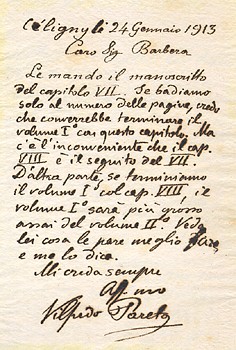 Céligny li 24 Gennaio 1913
Caro Sig Barbera
Le mando il manoscritto
del capitolo VII. Se badiamo
solo al numero delle pagine, credo
che converrebbe terminare il
volume I° con questo capitolo. Ma
c'è l'inconveniente che il cap.
VIII è il seguito del VII.
D'altra parte, se terminiamo
il volume I° col cap. VIII, il
volume I° sarà più grosso
assai del volume II°. Veda
lei cosa le pare meglio fare,
e me lo dica.
Mi creda sempre
Aff mo
Vilfredo Pareto